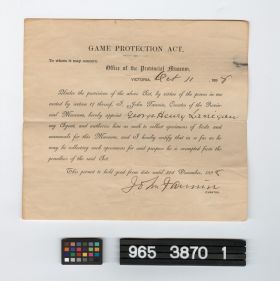 GAME PROTECTION ACT.
To whom it may concern.
Office of the Provincial Museum,
VICTORIA, Oct 11 189
Under the provision of the above Act, by virtue of the power in me
vested by section 17 thereof, I, John Fannin, Curator of the Provin-
cial Museum, hereby appoint George Henry
my Agent, and authorize him as such to collect specimens of birds and
mammals for this Museum, and I hereby certify that in so far as he
may be collecting such specimens for said purpose he is exempted from the
penalties of the said Act.
This permit to hold good from date until 31st December, 189
John Fannin
CURATOR.
965 3870 1